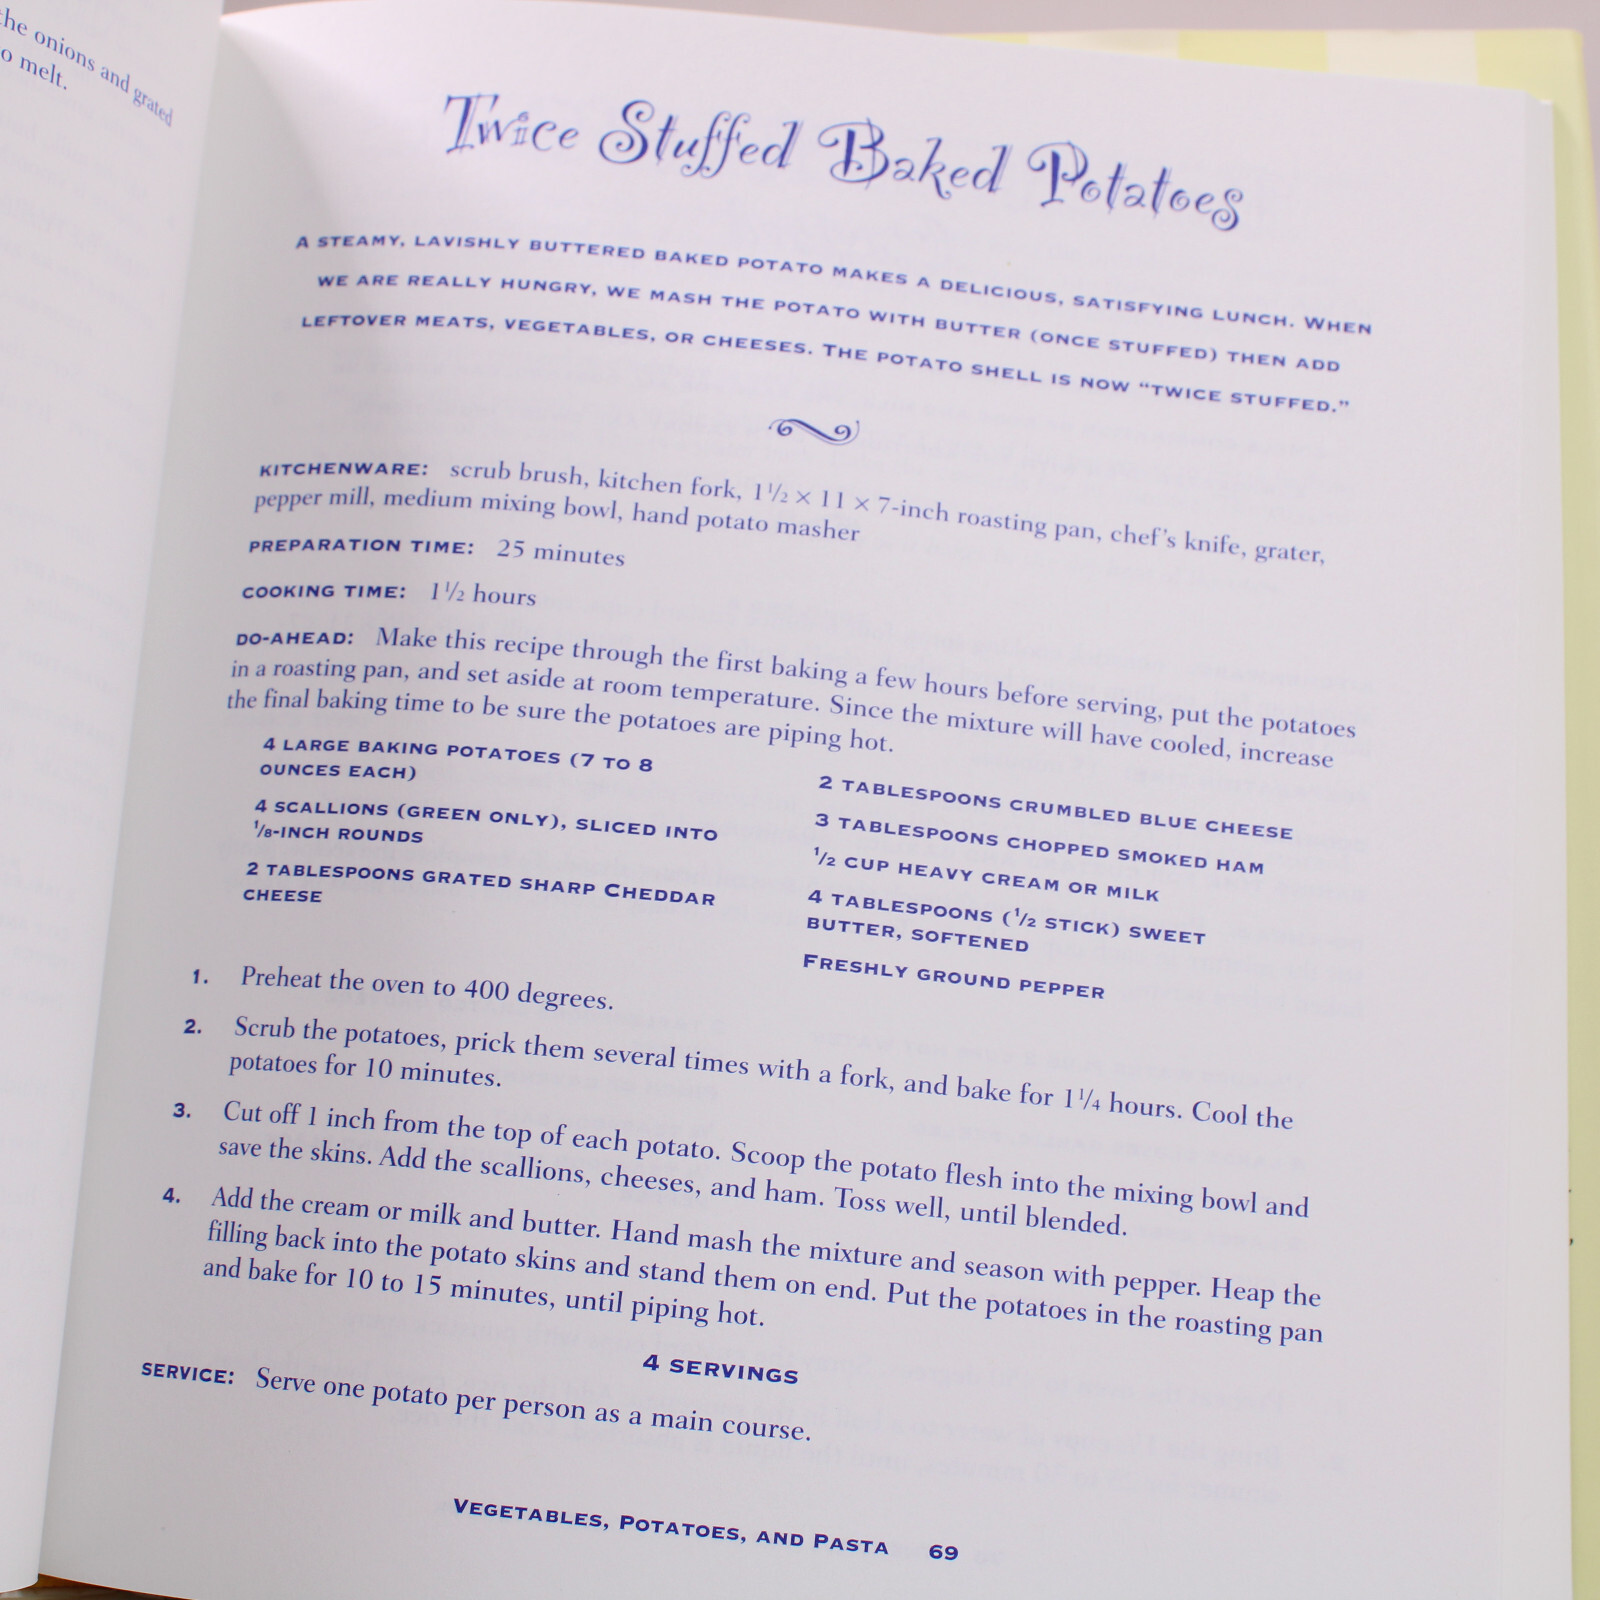 the onions and grated
o melt.
Twice Stuffed Baked Potatoes
A STEAMY, LAVISHLY BUTTERED BAKED POTATO MAKES A DELICIOUS, SATISFYING LUNCH. WHEN
WE ARE REALLY HUNGRY, WE MASH THE POTATO WITH BUTTER (ONCE STUFFED) THEN ADD
LEFTOVER MEATS, VEGETABLES, OR CHEESES. THE POTATO SHELL IS NOW “TWICE STUFFED.”
KITCHENWARE: scrub brush, kitchen fork, 1 1/2 × 11 × 7-inch roasting pan, chef’s knife, grater,
pepper mill, medium mixing bowl, hand potato masher
PREPARATION TIME: 25 minutes
COOKING TIME: 1 1/2 hours
DO-AHEAD: Make this recipe through the first baking a few hours before serving, put the potatoes
in a roasting pan, and set aside at room temperature. Since the mixture will have cooled, increase
the final baking time to be sure the potatoes are piping hot.
4 LARGE BAKING POTATOES (7 TO 8
OUNCES EACH)
4 SCALLIONS (GREEN ONLY), SLICED INTO
1/8-INCH ROUNDS
2 TABLESPOONS GRATED SHARP CHEDDAR
CHEESE
2 TABLESPOONS CRUMBLED BLUE CHEESE
3 TABLESPOONS CHOPPED SMOKED HAM
1/2 CUP HEAVY CREAM OR MILK
4 TABLESPOONS (1/2 STICK) SWEET
BUTTER, SOFTENED
FRESHLY GROUND PEPPER
1. Preheat the oven to 400 degrees.
2. Scrub the potatoes, prick them several times with a fork, and bake for 1 1/4 hours. Cool the
potatoes for 10 minutes.
3. Cut off 1 inch from the top of each potato. Scoop the potato flesh into the mixing bowl and
save the skins. Add the scallions, cheeses, and ham. Toss well, until blended.
4. Add the cream or milk and butter. Hand mash the mixture and season with pepper. Heap the
filling back into the potato skins and stand them on end. Put the potatoes in the roasting pan
and bake for 10 to 15 minutes, until piping hot.
4 SERVINGS
SERVICE: Serve one potato per person as a main course.
VEGETABLES, POTATOES, AND PASTA 69